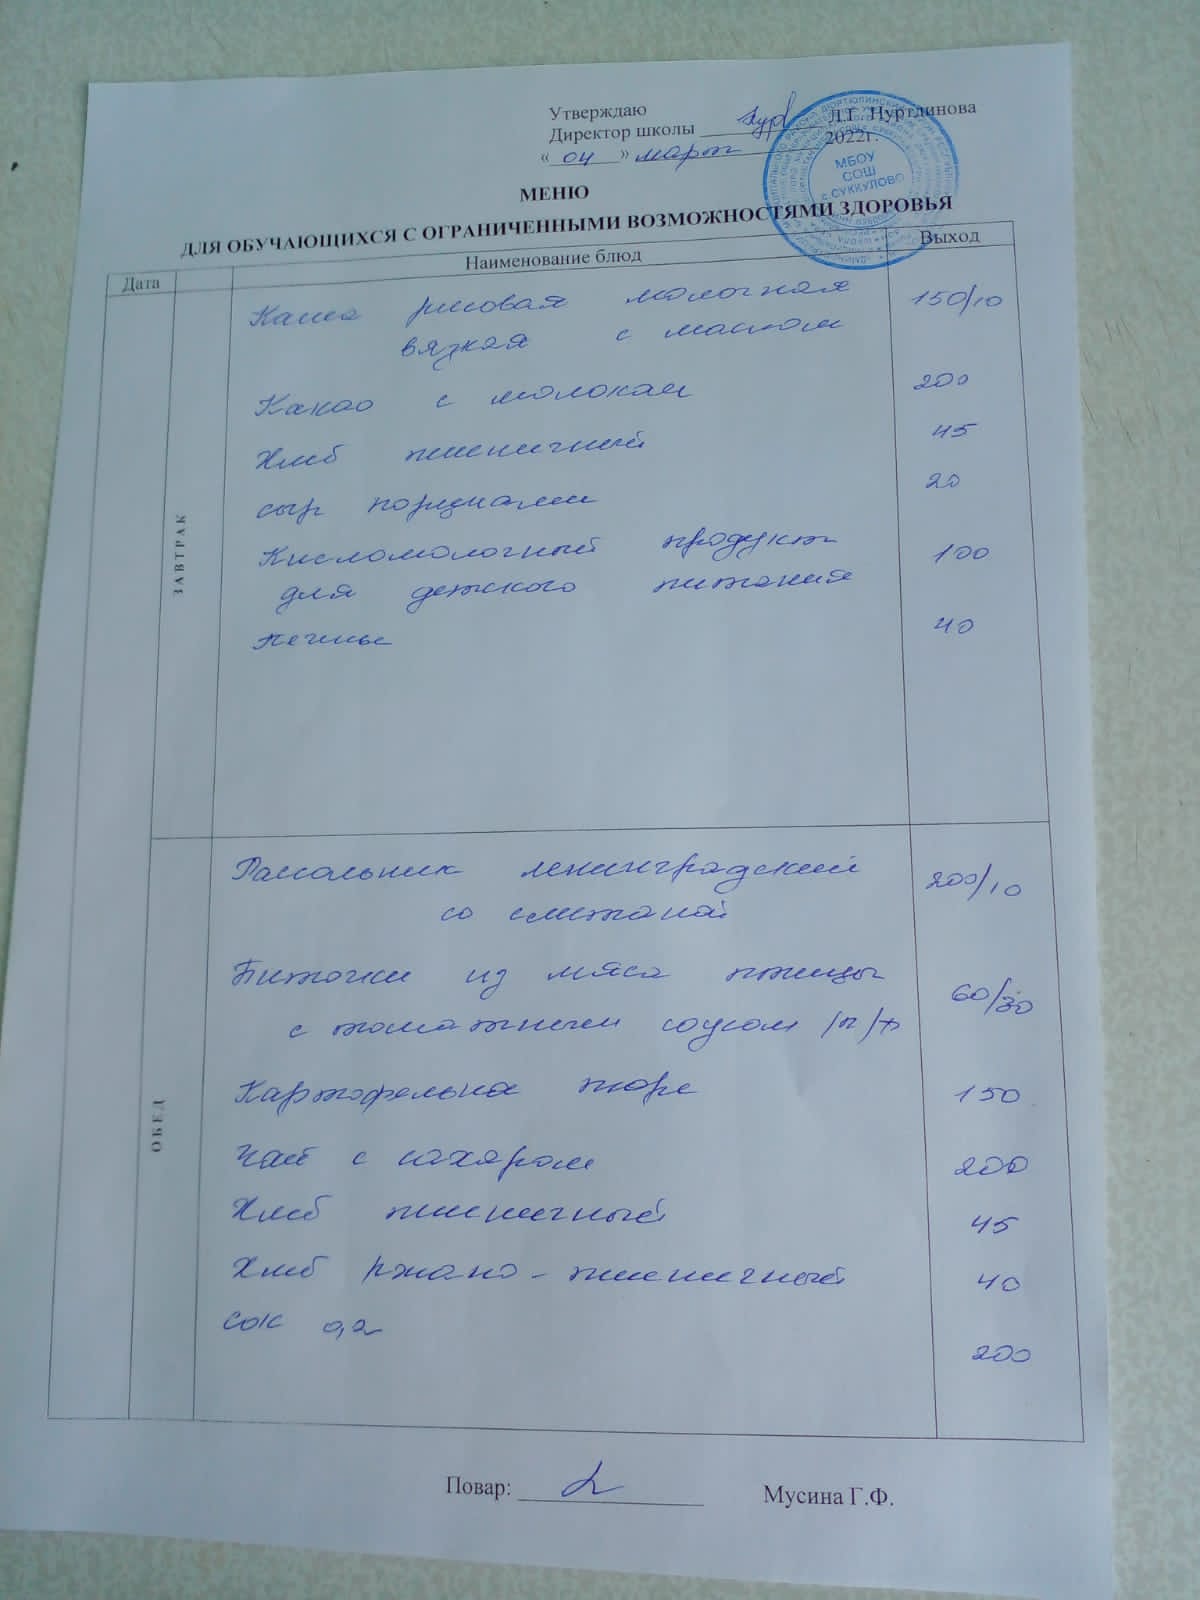 Утверждаю
Директор школы Л.Г. Нуртдинова
«04» март 2022г.
МБОУ
СОШ
с СУККУЛОВО
МЕНЮ
ДЛЯ ОБУЧАЮЩИХСЯ С ОГРАНИЧЕННЫМИ ВОЗМОЖНОСТЯМИ ЗДОРОВЬЯ
Дата Наименование блюд Выход
ЗАВТРАК
Каша рисовая молочная 150/10
вязкая с маслом
Какао с молокам 200
Хлеб пшеничный 45
сыр порциями 20
Кисломолочный продукт 100
для детского питания
печенье 40
ОБЕД
Рассольник ленинградский 200/10
со сметаной
Биточки из мяса птицы 60/30
с томатным соусом /п/ф
Картофельна пюре 150
Чай с сахаром 200
Хлеб пшеничный 45
Хлеб ржано-пшеничный 40
сок 0,2 200
Повар: Мусина Г.Ф.